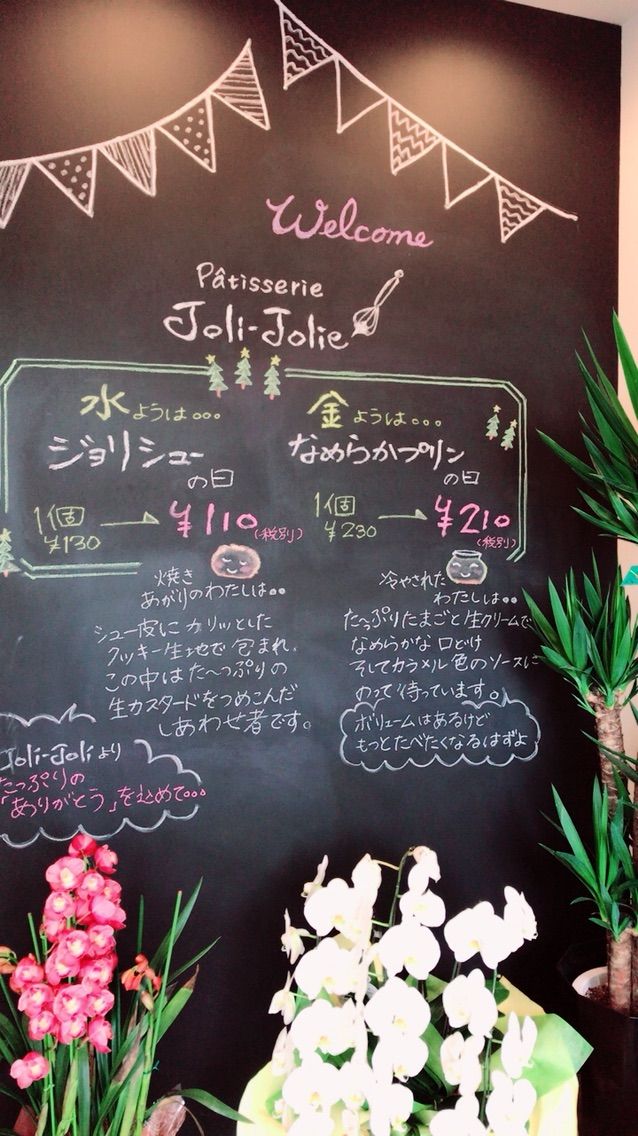 Welcome
Pâtisserie
Joli-Jolie
水ようは。。。
ジョリシュー
の日
1個 → ¥110
¥130 (税別)
焼き
あがりのわたしは。。
シュー皮にカリッとした
クッキー生地で包まれ、
この中はた〜っぷりの
生カスタードをつめこんだ
しあわせ者です。
金ようは。。。
なめらかプリン
の日
1個 → ¥210
¥230 (税別)
冷やされた
わたしは。。
た〜ぷりたまごと生クリームで
なめらかな口どけ
そしてカラメル色のソースに
のって待っています。
ボリュームはあるけど
もっとたべたくなるはずよ
Joli-Joliより
たっぷりの
「ありがとう」を込めて。。。